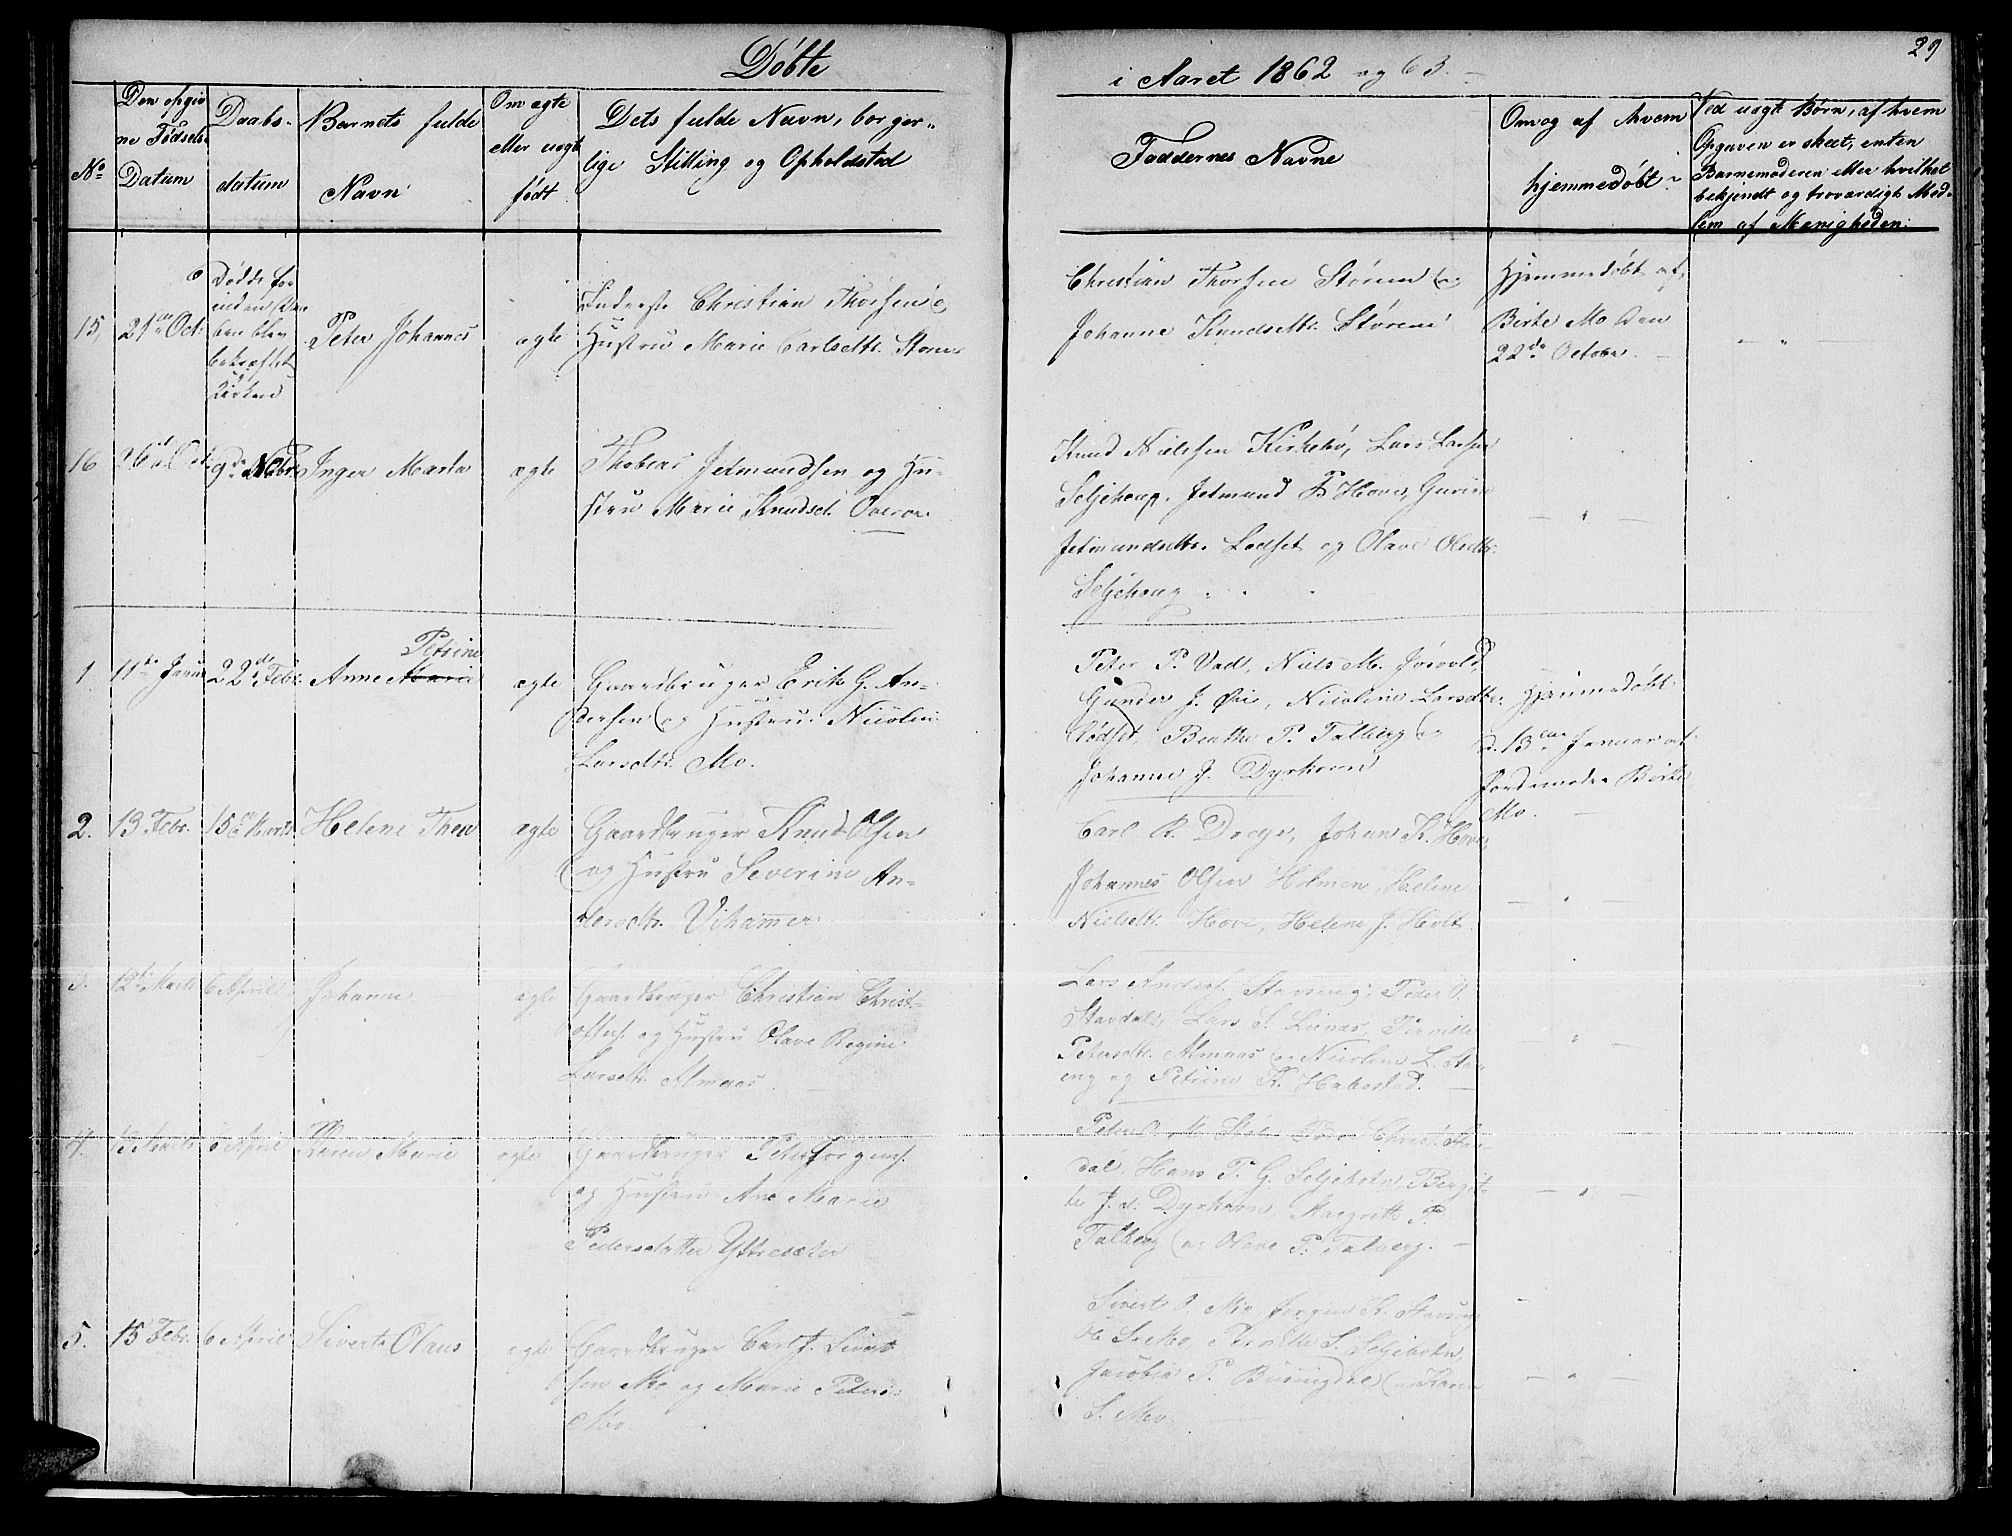 29
Døbte
i Aaret 1862 og 63.
No
Den opgiv
ne Fødsels-
Datum
Daabs-
datum
Barnets fulde
Navn
Om ægte
eller uægt
født
Dets fulde Navn, borger-
lige Stilling og Opholdssted
Faddernes Navne
Om og af hvem
hjemmedøbt
Ved uægt Børn, af hvem
Opgaven er skeet, enten
Barnemoderen eller hvilket
bekjendt og troværdigt Med-
lem af Menigheden.
15,
21de Oct.
Døde for
inden Daa
ben blev
bekræftet
i
Kirken
Peter Johannes
ægte
Inderst Christian Thorsen og
Hustru Marie Carlsdtr. Støren
Christian Thorsen Støren og
Johanne Knudsdtr. Støren
Hjemmedøbt af
Birte Mo den
22de October.
16
26de Oct.
9de Nobr.
Inger Marta
ægte
Thobias Jetmundsen og Hu-
stru Marie Knudsd. Overøe.
Knud Nielsen Kirkebø, Lars Larsen
Seljehoug, Jetmund P Hove, Gurine
Jetmundsdtr. Lødset og Olave Olsdtr.
Seljehoug
1.
11te Januar
22de Febr.
Petrine
Anne Marie
ægte
Gaardbruger Erik G. An-
dersen og Hustru Nicoline
Larsdtr. Mo.
Peter P. Vad, Niels M. Josvold,
Gunder J. Øie, Nicoline Larsdtr.
Lødset, Benthe P. Talberg og
Johanne J. Dyrkorn
Hjemmedøbt
d. 13de Januar af
Jordemoder Birte
Mo.
2.
13 Febr.
15de Marts
Helene Thea
ægte
Gaardbruger Knud Olsen
og Hustru Severine An-
dersdtr. Vihammer
Carl R. Drage, Johan K. Hove,
Johannes Olsen Holmen, Helene
Nielsdtr. Hove, Helene J. Hovlt
3.
12te Marts
6 April
Johanne
ægte
Gaardbruger Christian Christ-
offers. og Hustru Olave Regine
Larsdtr. Almaas
Lars Anders. Staveng, Peder O.
Stavdal, Lars S. Lianæs, Pernille
Petersdtr. Almaas og Nicoline L. Sta-
eng og Petrine K. Habostad.
4.
13 Marts
6 April
Karen Marie
ægte
Gaardbruger Peter Jørgens.
og Hustru Ane Marie
Pedersdatter Yttresæter
Christ. Sta-
dal, Hans P. G. Seljeholm, Bergit-
te J. d. Dyrkorn, Margrete P.
Talberg og Olave P. Talberg.
5.
15 Febr.
6 April
Sivert Olaus
ægte
Gaardbruger Carl J. Sivert
sen Mo og Marie Peters-
Mo.
Sivert O. Mo, Jørgen K. Staveng
Ole S. Mo, Pernille S. Seljeholm,
Jacobia P. Buringdal og Karen
S. Mo